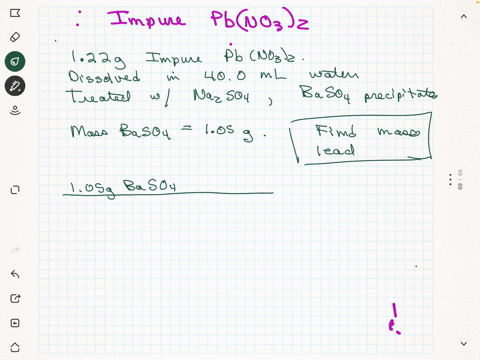 ∴ Impure Pb(NO3)2
1.22g Impure Pb(NO3)2.
Dissolved in 40.0 mL water
Treated w/ Na2SO4, BaSO4 precipitate
Mass BaSO4 = 1.05 g.
Find mass
lead
1.05g BaSO4